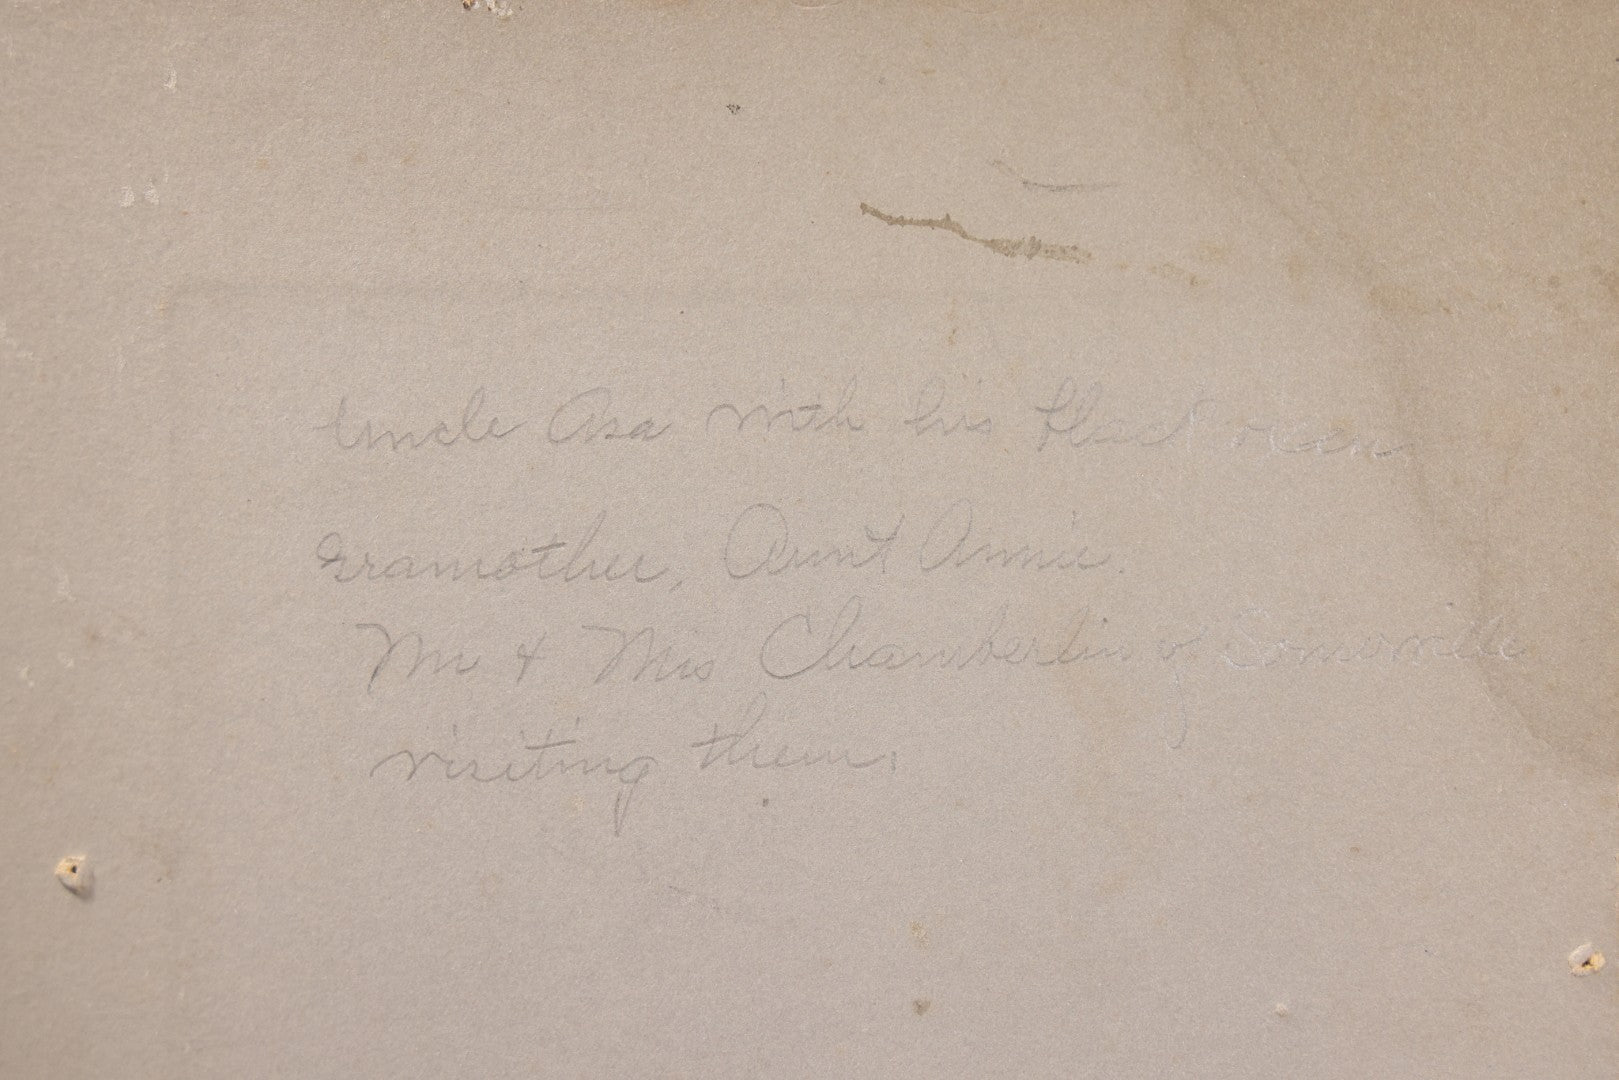 Uncle Asa with his black oxen
Gramother, Aunt Annie.
Mr & Mrs Chamberlin of Somerville
visiting them.